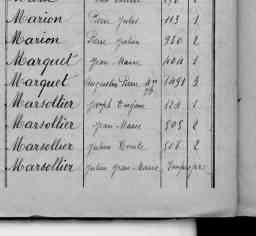 Marion Pierre Jules 113 1
Marion Pierre Julien 930 2
Marquet Jean Marie 404 1
Marquet Augustin Pierre 1491 3
Marsollier Joseph Eugène 124 1
Marsollier Jean Marie 505 2
Marsollier Julien 506 2
Marsollier Julien Jean Marie